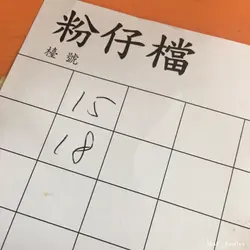 粉仔檔
檯號
15
18